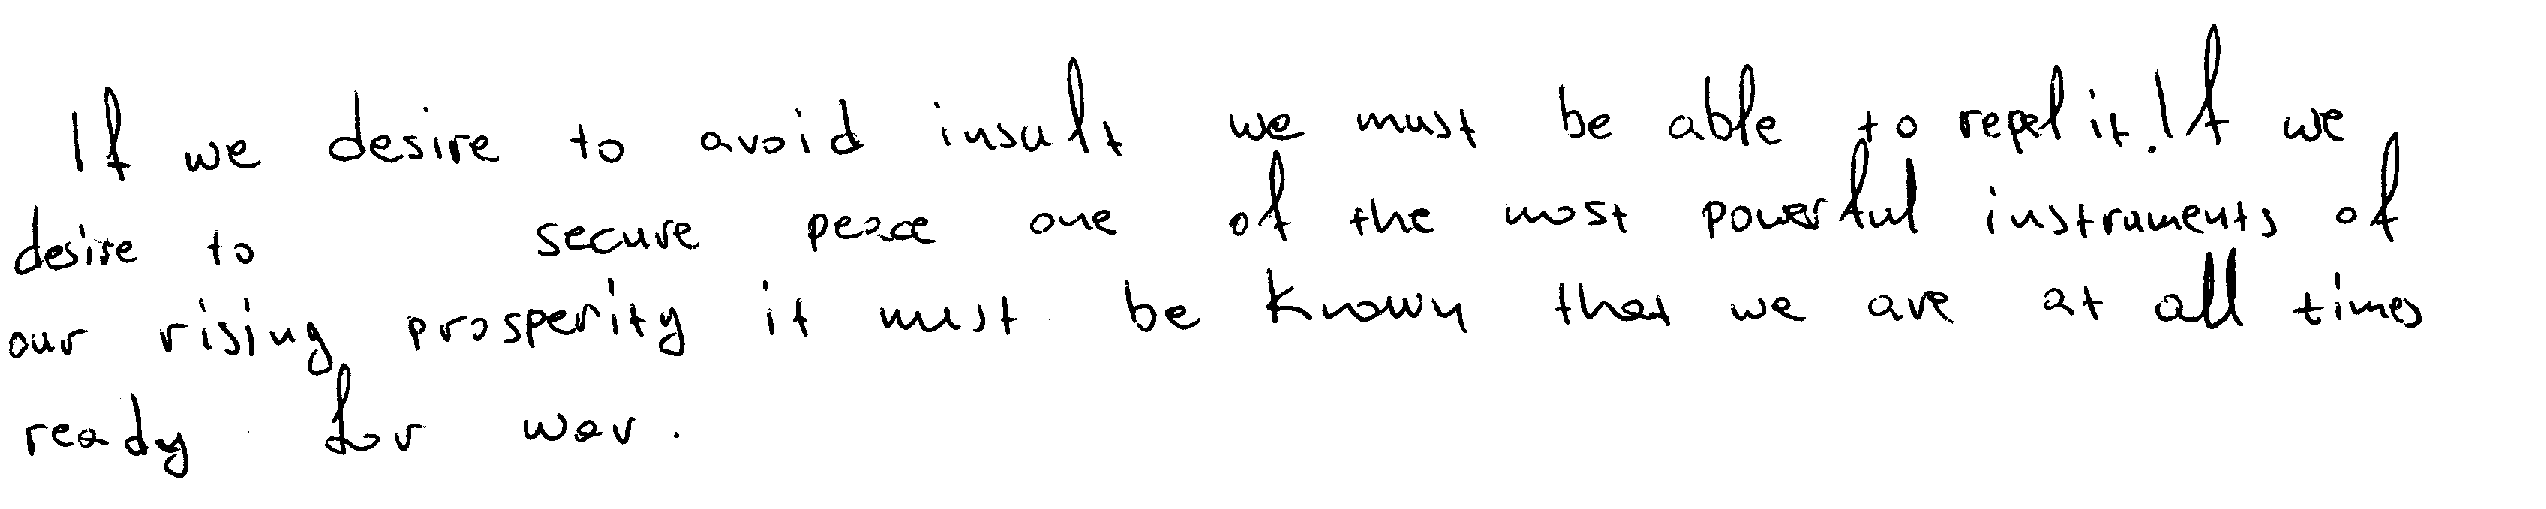 If we desire to avoid insult we must be able to repel it. If we
desire to secure peace one of the most powerful instruments of
our rising prosperity it must be known that we are at all times
ready for war.